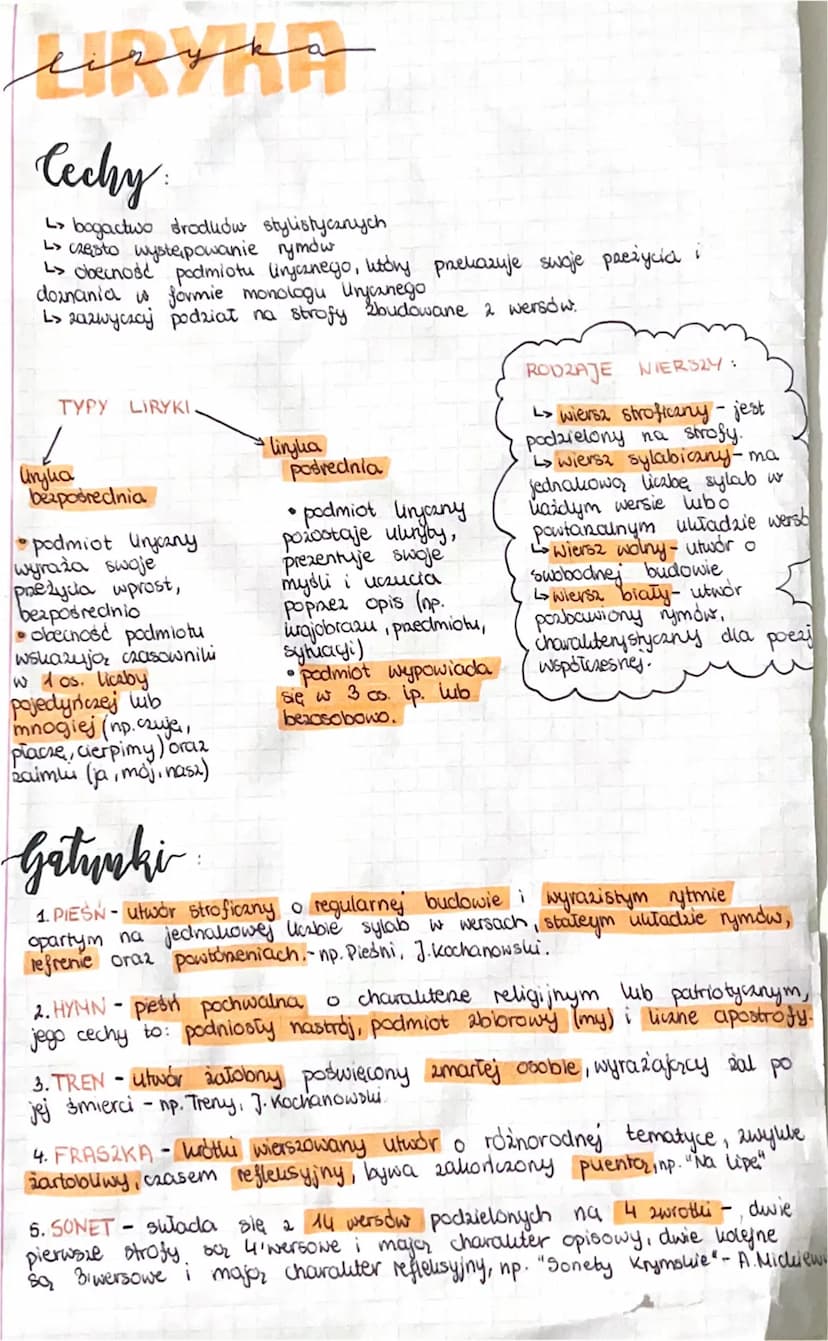 LIRYKA
liryka
Cechy:
↳ bogactwo środków stylistycznych
↳ często występowanie rymów
↳ obecność podmiotu lirycznego, który przekazuje swoje przeżycia i
doznania w formie monologu lirycznego
↳ zazwyczaj podział na strofy zbudowane z wersów.
TYPY LIRYKI
liryka
bezpośrednia
• podmiot liryczny
wyraża swoje
przeżycia wprost,
bezpośrednio
• obecność podmiotu
wskazują czasowniki
w 1 os. liczby
pojedyńczej lub
mnogiej (np. czuję,
płaczę, cierpimy) oraz
zaimki (ja, mój, nasz)
liryka
pośrednia
• podmiot liryczny
pozostaje ukryty,
prezentuje swoje
myśli i uczucia
poprzez opis (np.
krajobrazu, przedmiotu,
sytuacji)
• podmiot wypowiada
się w 3 os. lp. lub
bezosobowo.
RODZAJE WIERSZY:
↳ wiersz stroficzny - jest
podzielony na strofy.
↳ wiersz sylabiczny - ma
jednakową liczbę sylab w
każdym wersie lub o
powtarzalnym układzie wersó
↳ wiersz wolny - utwór o
swobodnej budowie
↳ wiersz biały - utwór
pozbawiony rymów,
charakterystyczny dla poezj
współczesnej.
Gatunki:
1. PIEŚŃ - utwór stroficzny o regularnej budowie i wyrazistym rytmie
opartym na jednakowej liczbie sylab w wersach, stałeym układzie rymów,
refrenie oraz powtórzeniach. - np. Pieśni, J. Kochanowski.
2. HYMN - pieśń pochwalna o charakterze religijnym lub patriotycznym,
jego cechy to: podniosły nastrój, podmiot zbiorowy (my) i liczne apostrofy.
3. TREN - utwór żałobny poświęcony zmarłej osobie, wyrażający żal po
jej śmierci - np. Treny, J. Kochanowski.
4. FRASZKA - krótki wierszowany utwór o różnorodnej tematyce, zwykle
żartobliwy, czasem refleksyjny, bywa zakończony puentą, np. "Na lipę"
5. SONET - składa się z 14 wersów podzielonych na 4 zwrotki -, dwie
pierwsze strofy są 4'wersowe i mają charakter opisowy, dwie kolejne
są 3'wersowe i mają charakter refleksyjny, np. "Sonety Krymskie" - A. Mickiew